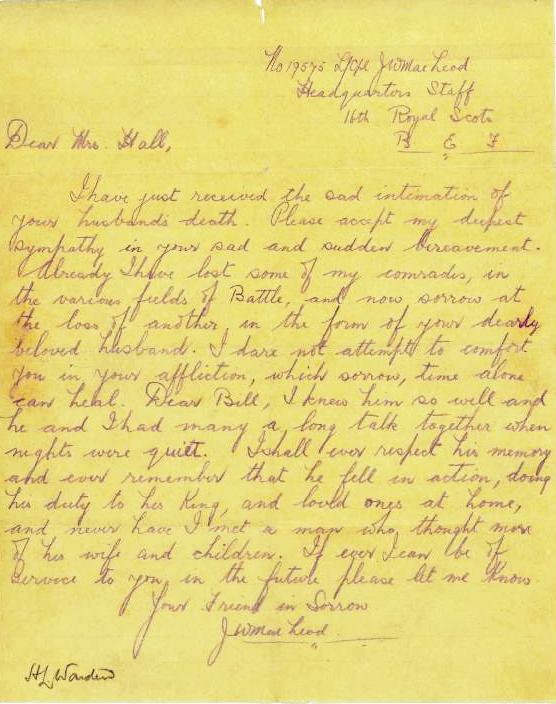 No 19575 L/Cpl J W MacLeod
Headquarters Staff
16th Royal Scots
B. E. F.
Dear Mrs. Hall,
I have just received the sad intimation of
your husbands death. Please accept my deepest
sympathy in your sad and sudden bereavement.
Already I have lost some of my comrades, in
the various fields of Battle, and now sorrow at
the loss of another, in the form of your dearly
beloved husband. I dare not attempt to comfort
you in your affliction, which sorrow, time alone
can heal. Dear Bill, I knew him so well and
he and I had many a long talk together when
nights were quiet. I shall ever respect his memory
and ever remember that he fell in action, doing
his duty to his King, and loved ones at home,
and never have I met a man who, thought more
of his wife and children. If ever I can be of
Service to you, in the future please let me know
Your Friend in Sorrow
J W MacLeod.